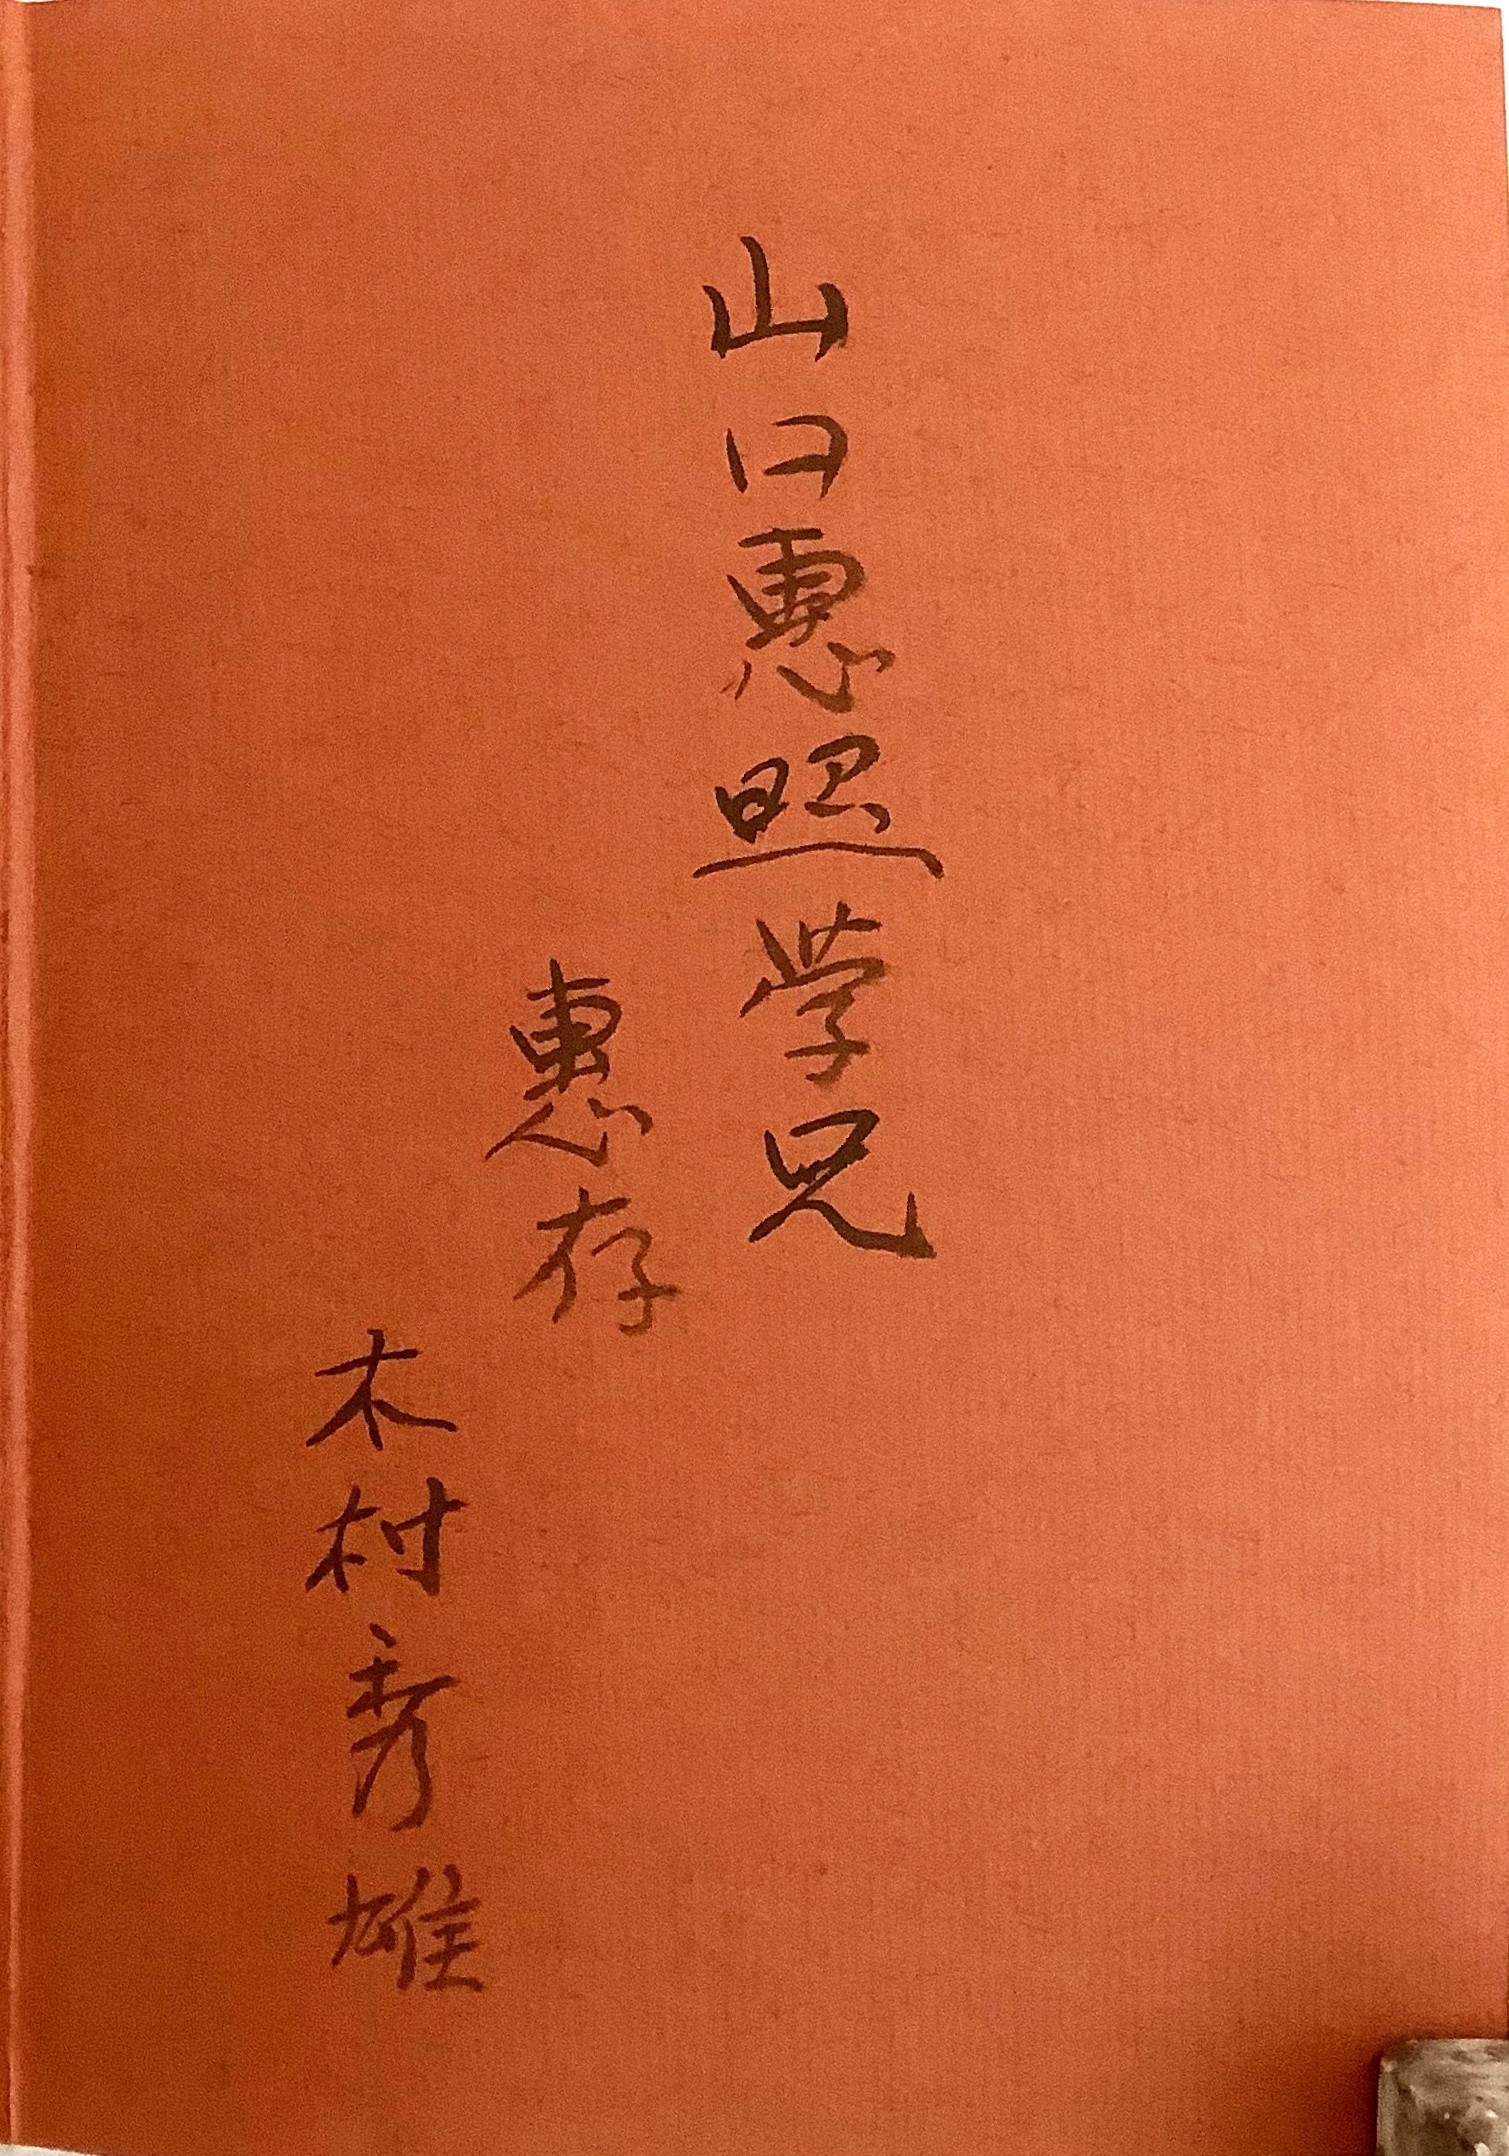 山口惠照学兄
惠存
木村秀雄